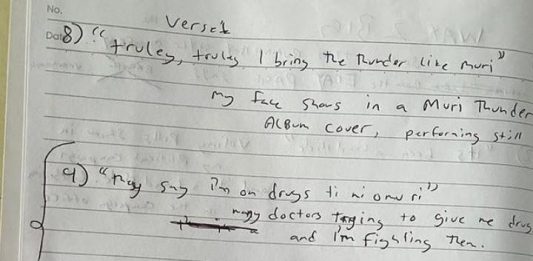 No.
Verse 1
Date
8) "truley, truley I bring the thunder like muri"
my face shows in a Muri Thunder
Album cover, performing still
9) "they say I'm on drugs ti ni omu ri"
many doctors trying to give me drugs
and I'm fighting them.